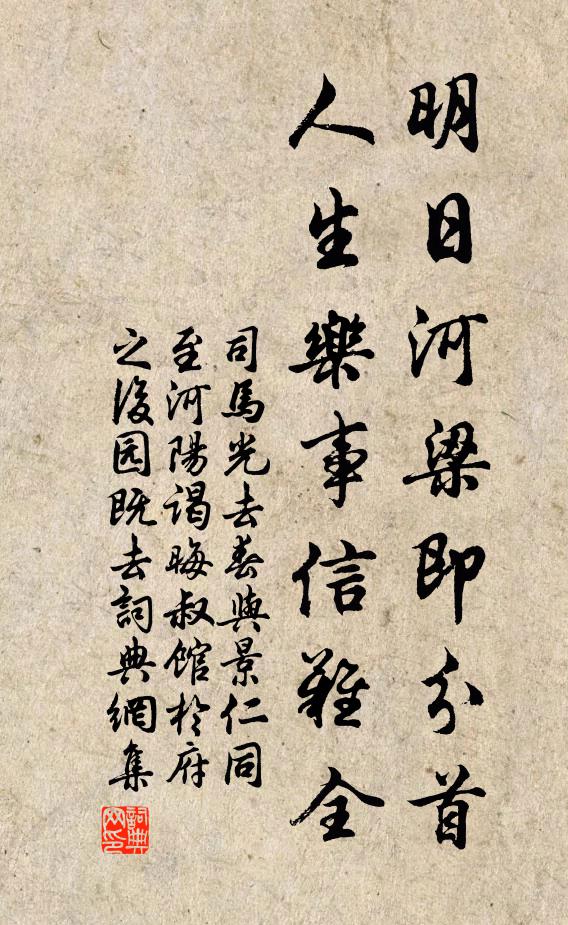 明日河梁即分首
人生樂事信難全
司馬光去春與景仁同
至河陽謁晦叔館於府
之後园既去詞典網集
詞典网印